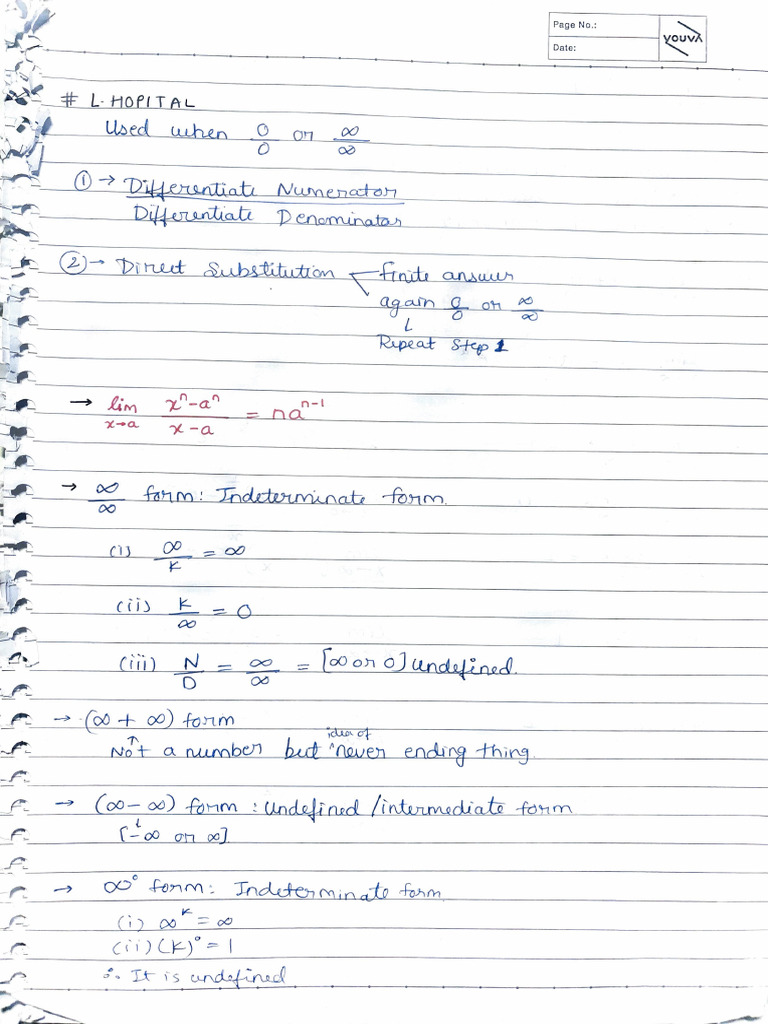 Page No.:
Date:
YOUVA
# L. HOPITAL
Used when 0/0 or ∞/∞
① → Differentiate Numerator
Differentiate Denominator
② → Direct Substitution finite answer
again 0/0 or ∞/∞
↓
Repeat Step 1
→ lim x→a (xⁿ-aⁿ)/(x-a) = naⁿ⁻¹
→ ∞/∞ form: Indeterminate form
(i) ∞/K = ∞
(ii) K/∞ = 0
(iii) N/D = ∞/∞ = [∞ or 0] undefined.
→ (∞ + ∞) form
idea of
Not a number but ^never ending thing.
→ (∞ - ∞) form : undefined /intermediate form
[-∞ or ∞].
→ ∞⁰ form: Indeterminate form
(i) ∞ᴷ = ∞
(ii) (K)⁰ = 1
∴ It is undefined